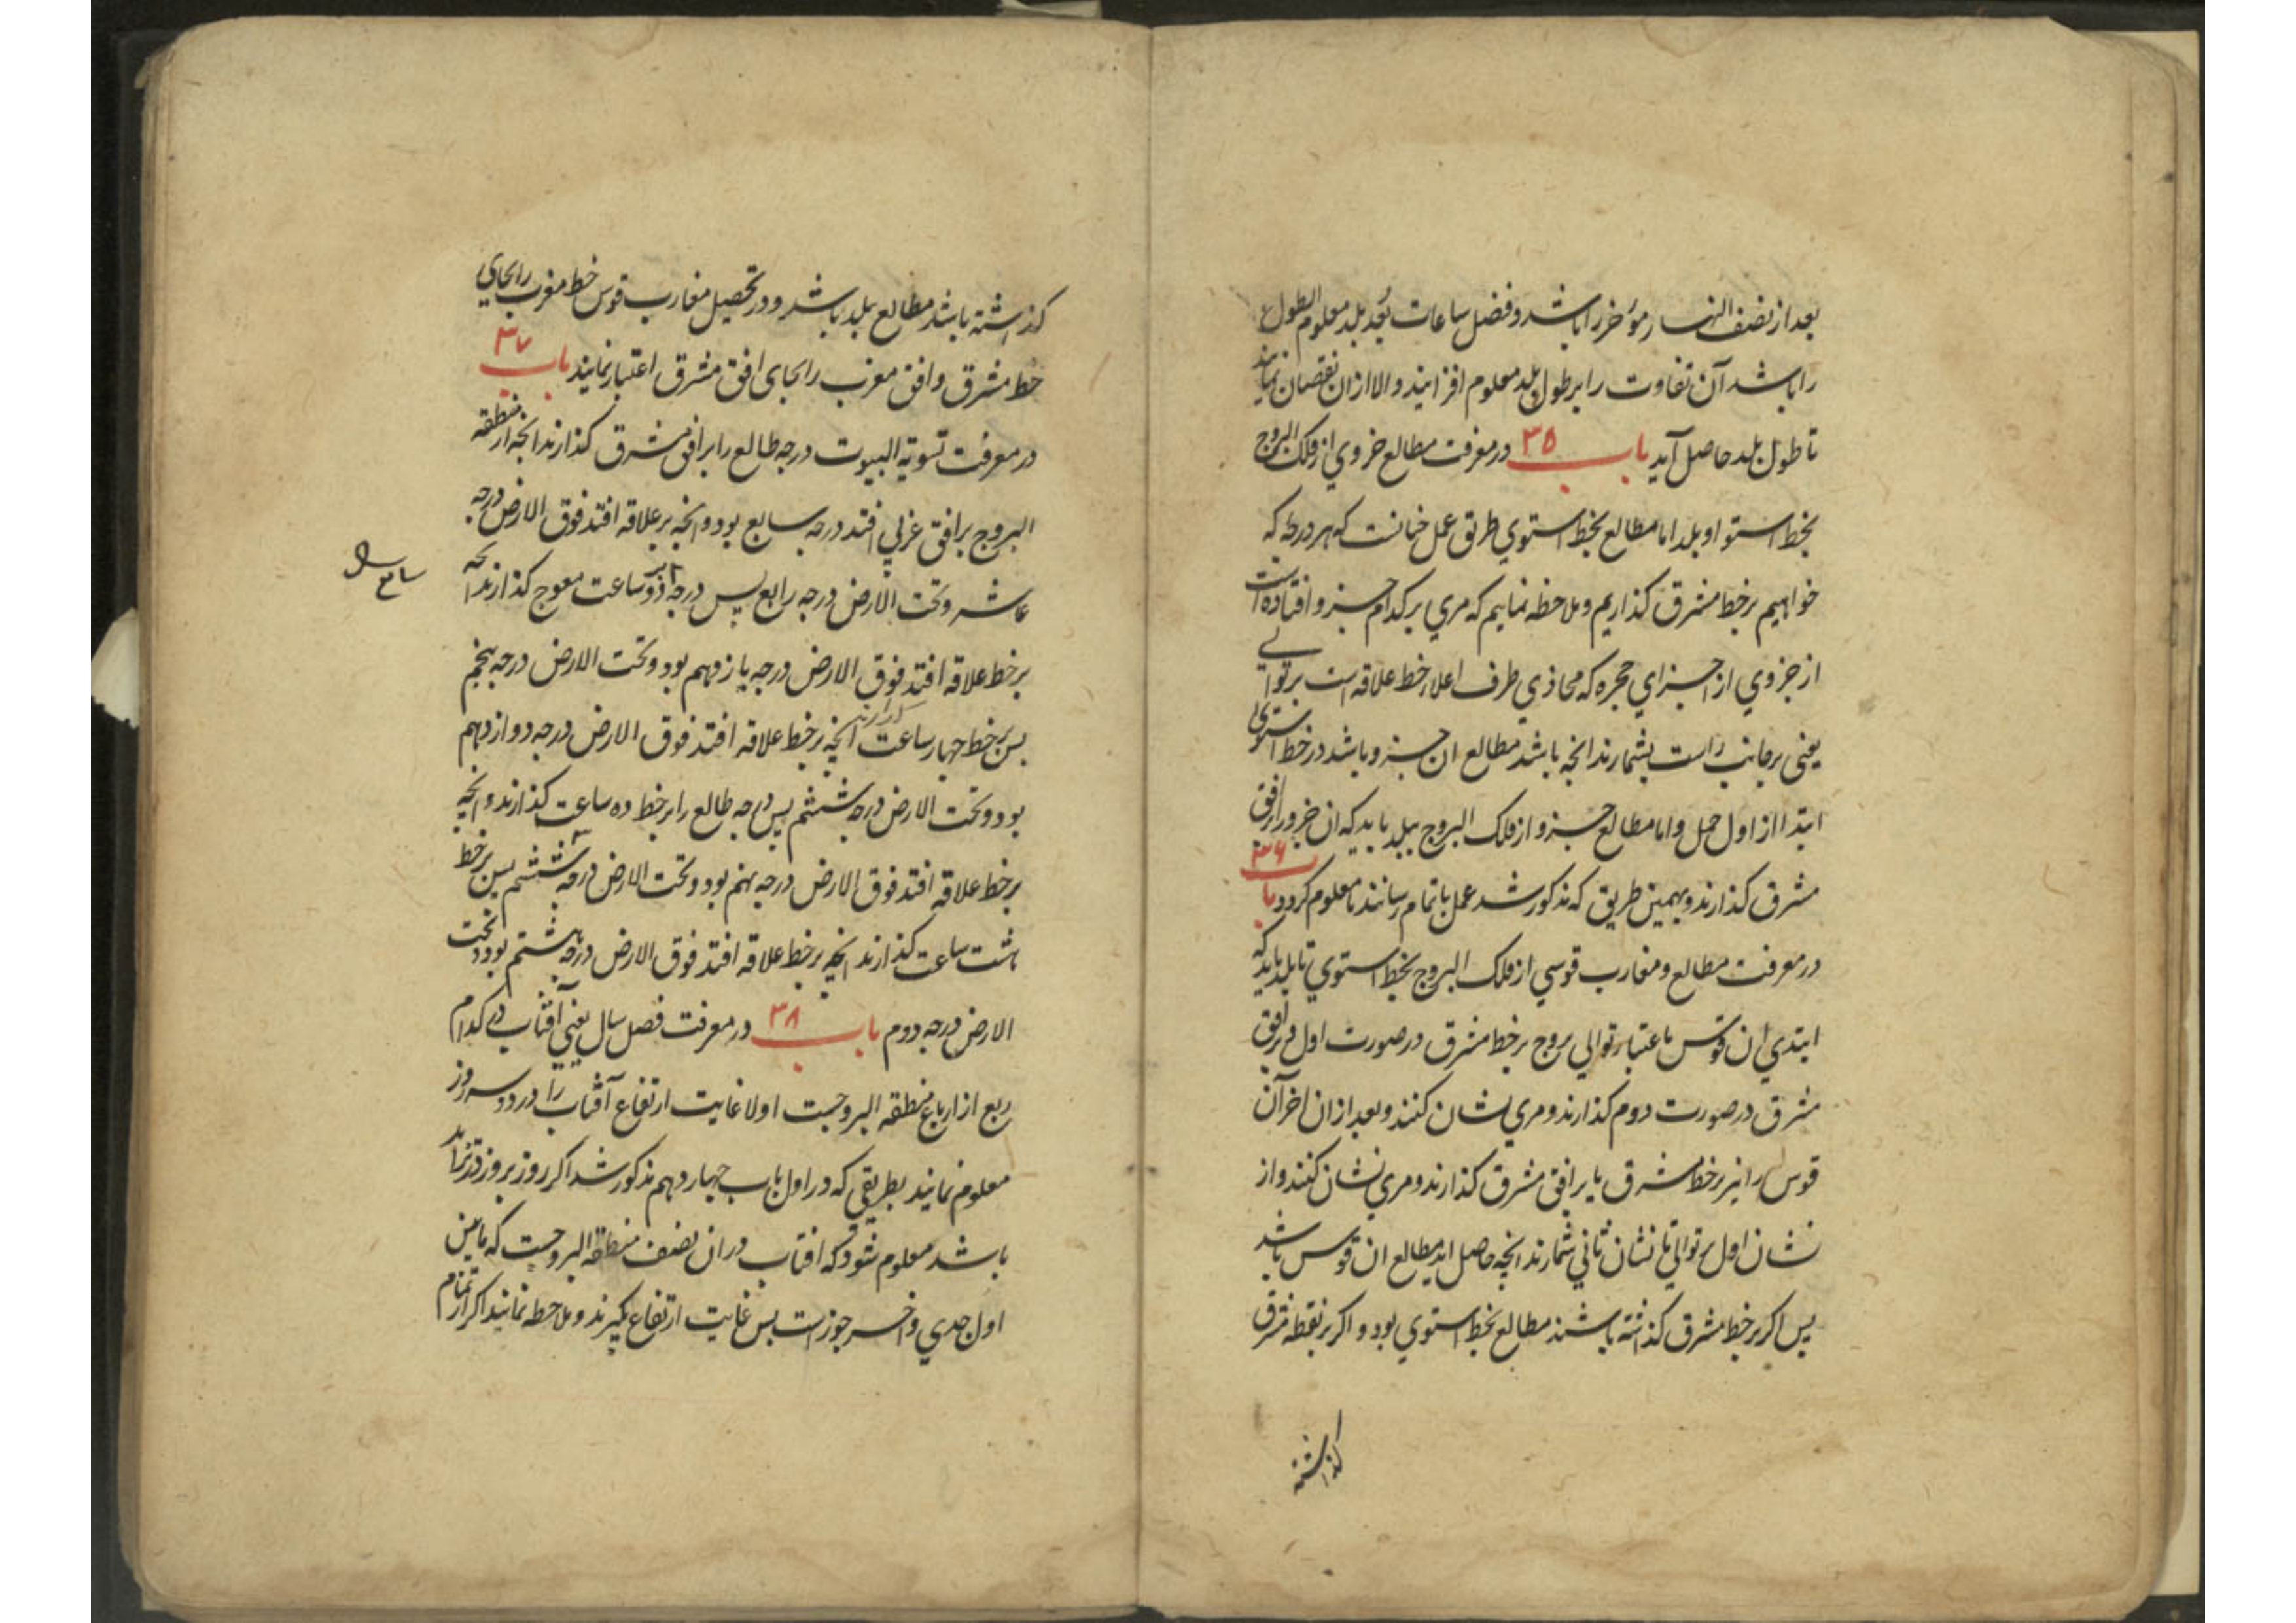 بعد از نصف النهار مؤخر را باشد و فضل ساعات بُعد بلد معلوم الطول
را باشد آن تفاوت را بر طول بلد معلوم افزایند و الا ازان نقصان نمایند
تا طول بلد حاصل آید باب ۳۵ در معرفت مطالع جزوی از فلک البروج
بخط استوا و بلد اما مطالع بخط استوی طریق عمل چنانست که هر درجه که
خواهیم بر خط مشرق گذاریم و ملاحظه نماییم که مری بر کدام جزو افتاده است
از جزوی از اجزای حجره که محاذی طرف اعلاء خط علاقه است بر توالی
یعنی بر جانب راست بشمارند انچه باشد مطالع ان جزو باشد در خط استوی
ابتدا از اول حمل و اما مطالع جزو از فلک البروج ببلد باید که ان جزو را بر افق
مشرق گذارند و بهمین طریق که مذکور شد عمل باتمام رسانند تا معلوم کردد باب ۳۶
در معرفت مطالع و مغارب قوسی از فلک البروج بخط استوی تا بلد باید که
ابتدی ان قوس باعتبار توالی بروج بر خط مشرق در صورت اول و بر افق
مشرق در صورت دوم گذارند و مری نشان کنند و بعد ازان اخر آن
قوس را نیز بر خط مشرق یا بر افق مشرق گذارند و مری نشان کنند و از
نشان اول بر توالی تا نشان ثانی شمارند انچه حاصل اید مطالع ان قوس باشد
پس اگر بر خط مشرق گذاشته باشند مطالع بخط استوی بود و اگر بر نقطه مشرق
گذاشته
گذاشته باشد مطالع بلد باشد و در تحصیل مغارب قوس خط مغرب را بجای
خط مشرق و افق مغرب را بجای افق مشرق اعتبار نمایند باب ۳۷
در معرفت تسویة البیوت درجه طالع را بر افق مشرق گذارند انچه از منطقه
البروج بر افق غربی افتد درجه سابع بود و انچه بر علاقه افتد فوق الارض درجه
عاشر و تحت الارض درجه رابع پس درجه را بر دو ساعت معوج گذارند انچه
بر خط علاقه افتد فوق الارض درجه یازدهم بود و تحت الارض درجه پنجم
پس بر خط چهار ساعت گذارند انچه بر خط علاقه افتد فوق الارض درجه دوازدهم
بود و تحت الارض درجه ششم پس درجه طالع را بر خط ده ساعت گذارند و انچه
بر خط علاقه افتد فوق الارض درجه نهم بود و تحت الارض درجه ششم پس بر خط
هشت ساعت گذارند انچه بر خط علاقه افتد فوق الارض درجه هشتم بود و تحت
الارض درجه دوم باب ۳۸ در معرفت فصل سال یعنی آفتاب در کدام
ربع از ارباع منطقه البروجست اولا غایت ارتفاع آفتاب را در دو سه روز
معلوم نمایند بطریقی که در اول باب چهاردهم مذکور شد اگر روز بروز در تزاید
باشد معلوم شود که افتاب در ان نصف منطقه البروجست که مابین
اول جدی و اخر جوزاست پس غایت ارتفاع بگیرند و ملاحظه نمایند اگر از تمام